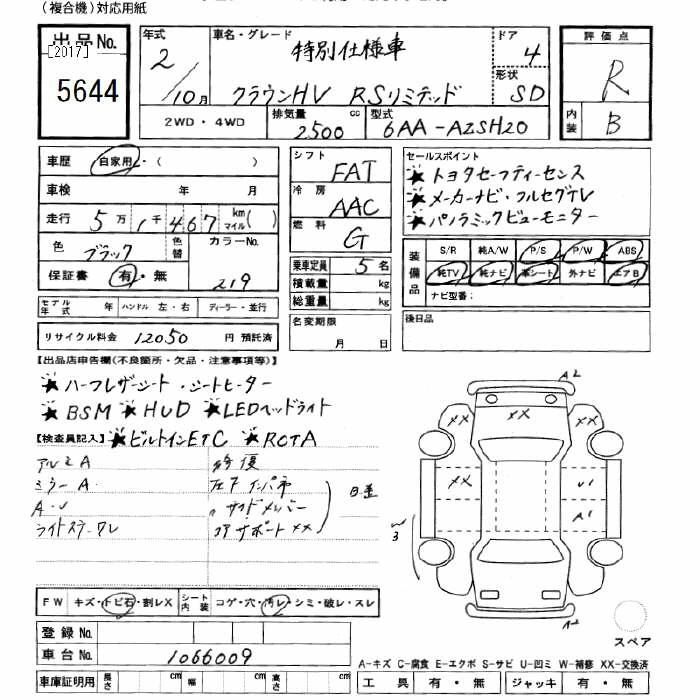 (複合機)対応用紙
出品No.
[2017]
5644
年式
2/10月
車名・グレード
特別仕様車
クラウンHV RSリミテッド
ドア
4
形状
SD
2WD・4WD
排気量
2500 cc
型式
6AA-AZSH20
評価点
R
内装
B
車歴
自家用・( )
車検 年 月
走行 5万1千467 km マイル( )
色 ブラック
色替
カラーNo.
219
保証書 有・無
モデル年式 年
ハンドル 左・右
ディーラー・並行
リサイクル料金 12050 円 預託済
シフト
FAT
冷房
AAC
燃料
G
乗車定員 5 名
積載量 kg
総重量 kg
名変期限
月 日
セールスポイント
★トヨタセーフティーセンス
★メーカーナビ・フルセグTV
★パノラミックビューモニター
装備品
S/R 純A/W P/S P/W ABS
純TV 純ナビ 革シート 外ナビ エアB
ナビ型番:
後日品
【出品店申告欄(不良箇所・欠品・注意事項等)】
★ハーフレザーシート・シートヒーター
★BSM ★HUD ★LEDヘッドライト
【検査員記入】
★ビルトインETC ★RCTA
アルミA
ミラーA.
A・U
修復
左F インパネ
〃 サイドメンバー
コアサポートXX
A2
XX
XX
XX
XX
U1
A1
W3
A2
スペア
FW
キズ・トビ石・割レX
シート内装
コゲ・穴・汚レ・シミ・破レ・スレ
登録No.
車台No.
1066009
車庫証明用
長さ cm
幅 cm
高さ cm
A-キズ C-腐食 E-エクボ S-サビ U-凹ミ W-補修 XX-交換済
工具 有・無
ジャッキ 有・無